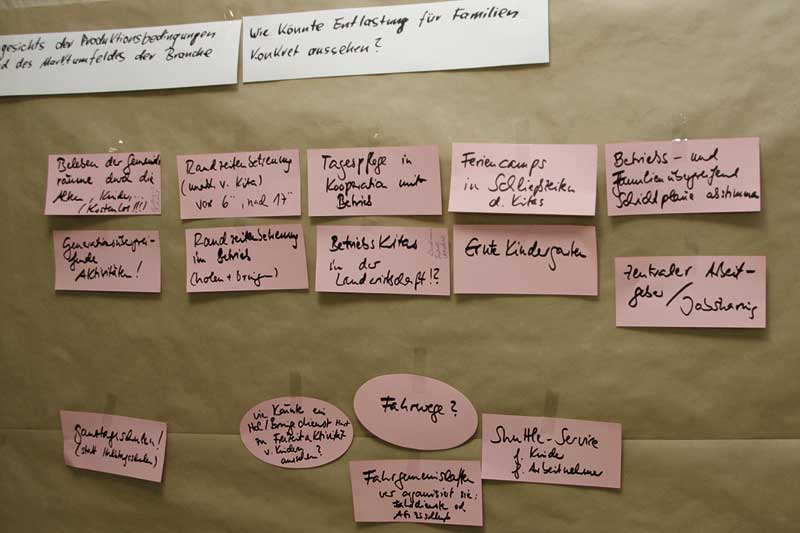 gesichts der Produktionsbedingungen
d des Marktumfeldes der Branche
Wie könnte Entlastung für Familien
konkret aussehen?
Beleben der Gemeinde
räume durch die
Alten, Kinder...
(Kostenlos!!!)
Randzeitenbetreuung
(auch v. Kita)
vor 6°°, nach 17°°
Tagespflege in
Kooperation mit
Betrieb
Feriencamps
in Schließzeiten
d. Kitas
Betriebs- und
Familienübergreifend
Schichtpläne abstimmen
Generationsübergrei-
fende
Aktivitäten!
Randzeitenbetreuung
im Betrieb
(holen + bringen)
Betriebskitas
in der
Landwirtschaft!?
Ernte Kindergarten
zentraler Arbeit-
geber / Jobsharing
Ganztagsschulen!
(statt Halbtagsschulen)
wie könnte ein
Hol/Bringdienst
zu Freizeitaktivität
v. Kindern
aussehen?
Fahrwege?
Shuttle-Service
f. Kinder
f. Arbeitnehmer
Fahrgemeinschaften
wer organisiert sie:
Fahrdienste od